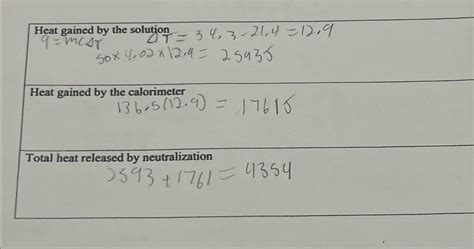 Heat gained by the solution
q = mCΔT ΔT = 34.3 - 21.4 = 12.9
50 x 4.02 x 12.9 = 2593J
Heat gained by the calorimeter
136.5(12.9) = 1761J
Total heat released by neutralization
2593 + 1761 = 4354